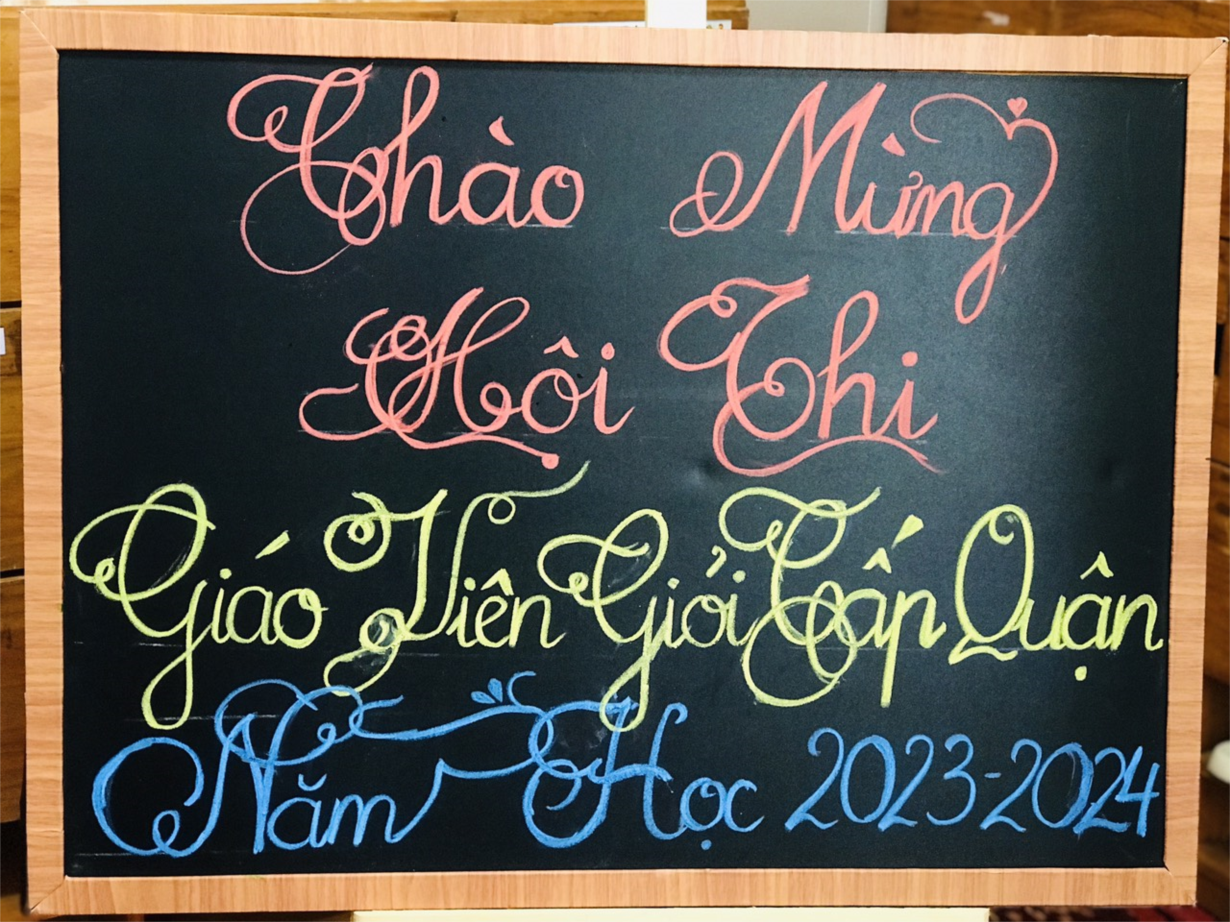 Chào Mừng
Hội Thi
Giáo Viên Giỏi Cấp Quận
Năm Học 2023-2024